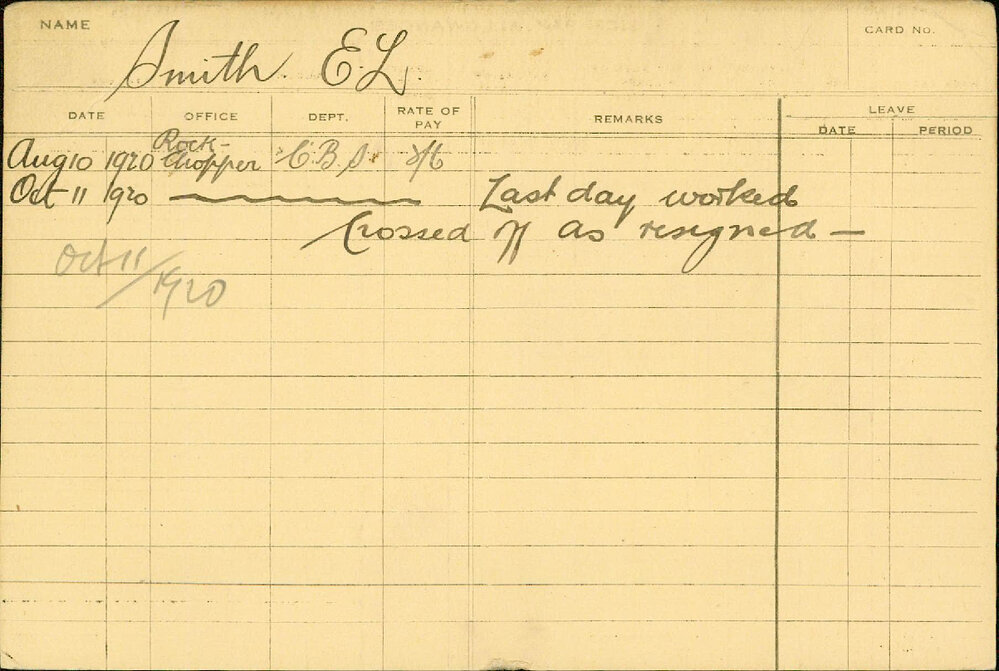 NAME
CARD No.
Smith. E. L.
DATE OFFICE DEPT. RATE OF PAY REMARKS LEAVE
DATE PERIOD
Aug 10 1920 Rock-Chopper C. B. S.
Oct 11 1920 Last day worked
Crossed off as resigned —
Oct 11/1920